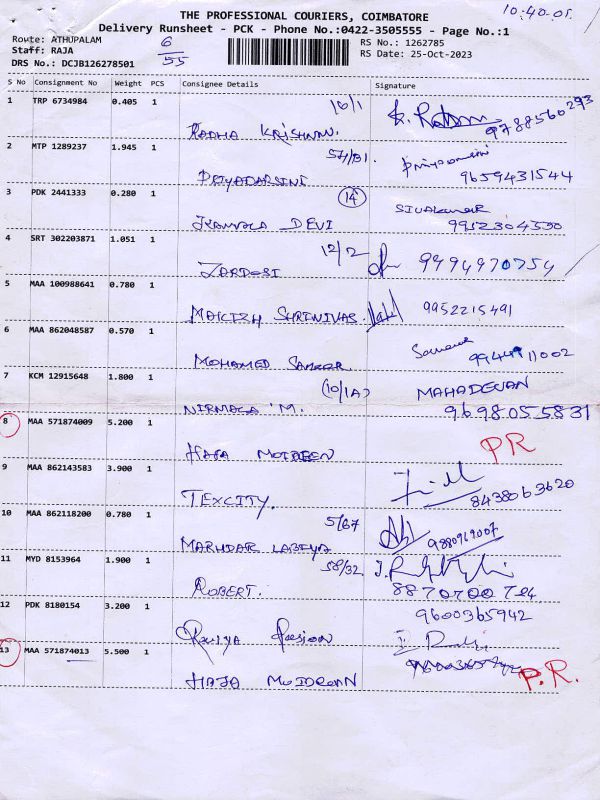 10.40.01.
THE PROFESSIONAL COURIERS, COIMBATORE
Delivery Runsheet - PCK - Phone No.:0422-3505555 - Page No.:1
Route: ATHUPALAM 6/55 RS No.: 1262785
Staff: RAJA RS Date: 25-Oct-2023
DRS No.: DCJB126278501
S No Consignment No Weight PCS Consignee Details Signature
1 TRP 6734984 0.405 1 10/1
RADHA KRISHNAN. 9788560293
2 MTP 1289237 1.945 1 57/131.
PRIYADARSINI 9659431544
3 PDK 2441333 0.280 1 14 SIVAKUMAR
KAMALA DEVI 9952304530
4 SRT 302203871 1.051 1 12/2
ZARDOSI 9494970754
5 MAA 100988641 0.780 1 9952215491
SHRINIVAS.
6 MAA 862048587 0.570 1
MOHAMED 9944911002
7 KCM 12915648 1.800 1 (10/1A) MAHADEVAN
NIRMALA M. 9698055831
8 MAA 571874009 5.200 1 PR
HAJA
9 MAA 862143583 3.900 1
TEXCITY. 8438063620
10 MAA 862118200 0.780 1 5/67
9880919007
11 MYD 8153964 1.900 1 58/32
ROBERT.
12 PDK 8180154 3.200 1 9600365942
13 MAA 571874013 5.500 1 P.R.
HAJA